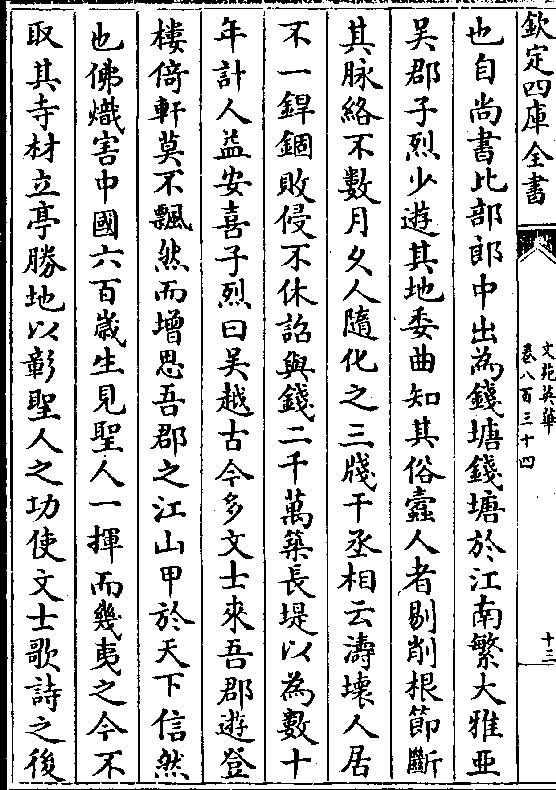 欽定四庫全書
文苑英華
卷八百三十四
十三
也自尚書比部郎中出為錢塘錢塘於江南繁大雅亞
吴郡子烈少遊其地委曲知其俗蠧人者剔削根節斷
其脉絡不數月乆人隨化之三牋干丞相云濤壊人居
不一銲錮敗侵不休詔與錢二千萬築長堤以為數十
年計人益安喜子烈曰吴越古今多文士來吾郡遊登
樓倚軒莫不飄然而增思吾郡之江山甲於天下信然
也佛熾害中國六百嵗生見聖人一揮而幾夷之今不
取其寺材立亭勝地以彰聖人之功使文士歌詩之後